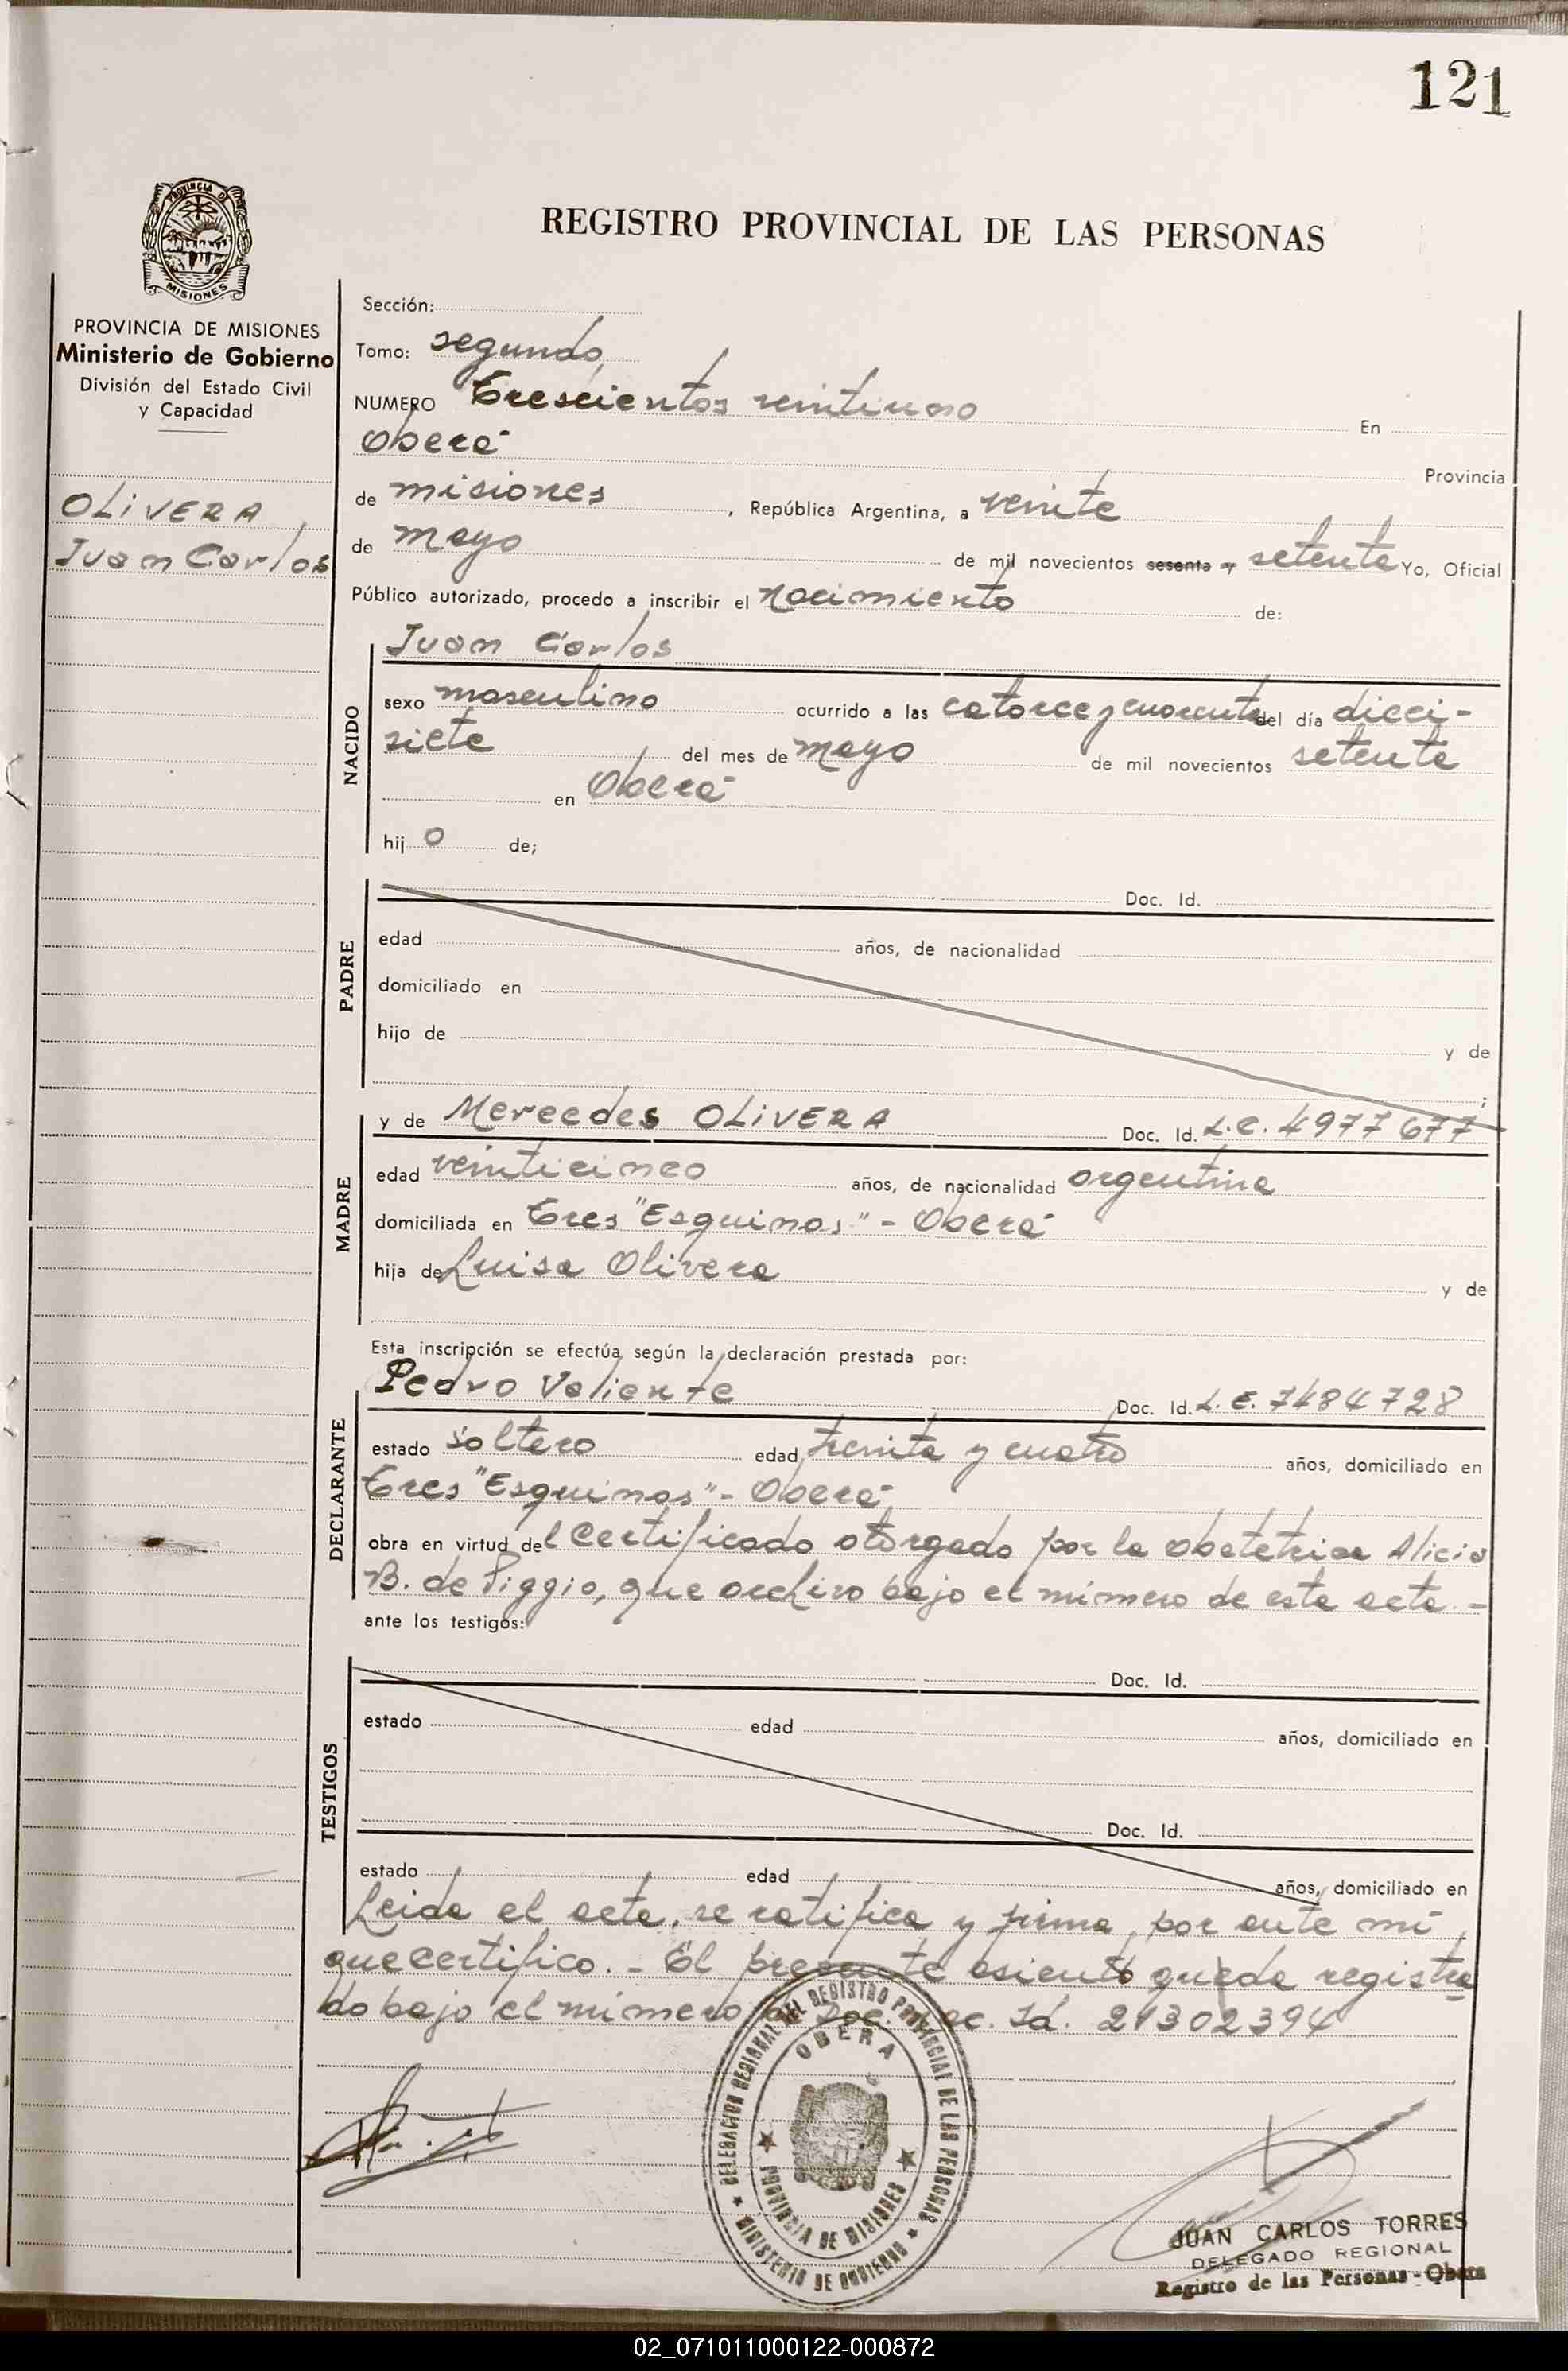 121
PROVINCIA DE
MISIONES
REGISTRO PROVINCIAL DE LAS PERSONAS
PROVINCIA DE MISIONES
Ministerio de Gobierno
División del Estado Civil
y Capacidad
OLiVERA,
Juan Carlos
Sección:
Tomo: segundo
NUMERO Trescientos veintiuno En
Oberá Provincia
de misiones, República Argentina, a veinte
de mayo de mil novecientos sesenta y setenta Yo, Oficial
Público autorizado, procedo a inscribir el nacimiento de:
NACIDO
Juan Carlos
sexo masculino ocurrido a las catorce y cuarenta del día dieci-
siete del mes de mayo de mil novecientos setenta
en Oberá
hijo de;
PADRE
Doc. Id.
edad años, de nacionalidad
domiciliado en
hijo de y de
;
MADRE
y de Mercedes OLiVERA Doc. Id. L.C. 4977677
edad veinticinco años, de nacionalidad argentina
domiciliada en Tres "Esquinas" - Oberá
hija de Luisa Olivera y de
Esta inscripción se efectúa según la declaración prestada por:
DECLARANTE
Pedro Valiente Doc. Id. L.E. 7484728
estado soltero edad treinta y cuatro años, domiciliado en
Tres "Esquinas" - Oberá
obra en virtud del Certificado otorgado por la obstetrica Alicia
B. de Piggio, que archivo bajo el número de esta acta. -
ante los testigos:
TESTIGOS
Doc. Id.
estado edad años, domiciliado en
Doc. Id.
estado edad años, domiciliado en
Leida el acta, se ratifica y firma, por ante mí
que certifico. - El presente asiento queda registra
do bajo el número Doc. Nac. Id. 21302394
DELEGACION REGIONAL DEL REGISTRO PROVINCIAL DE LAS PERSONAS
OBERA
PROVINCIA DE MISIONES
MINISTERIO DE GOBIERNO
JUAN CARLOS TORRES
DELEGADO REGIONAL
Registro de las Personas - Obera
02_071011000122-000872